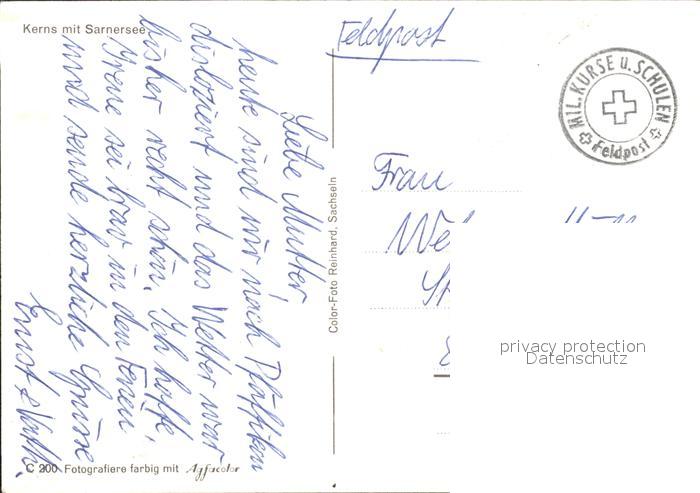 Kerns mit Sarnersee
Feldpost
MIL. KURSE U. SCHULEN
Feldpost
Liebe Mutter,
heute sind wir nach Pfäffikon
disloziert und das Wetter war
bisher recht schön. Ich hoffe,
Irene sei brav in den Ferien
und sende herzliche Grüsse
Ernst &
Color-Foto Reinhard, Sachseln
Frau
We
St
privacy protection
Datenschutz
C 200 Fotografiere farbig mit Agfacolor